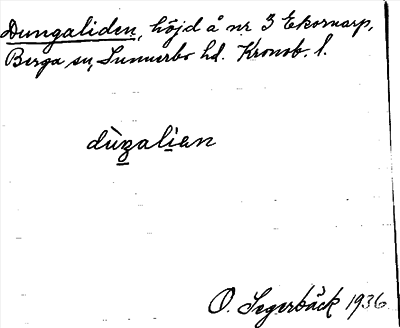 Dungaliden, höjd å nr 3 Ekornarp,
Berga sn, Sunnerbo hd. Kronob. l.
dùṉali̱an
O. Segerbäck 1936